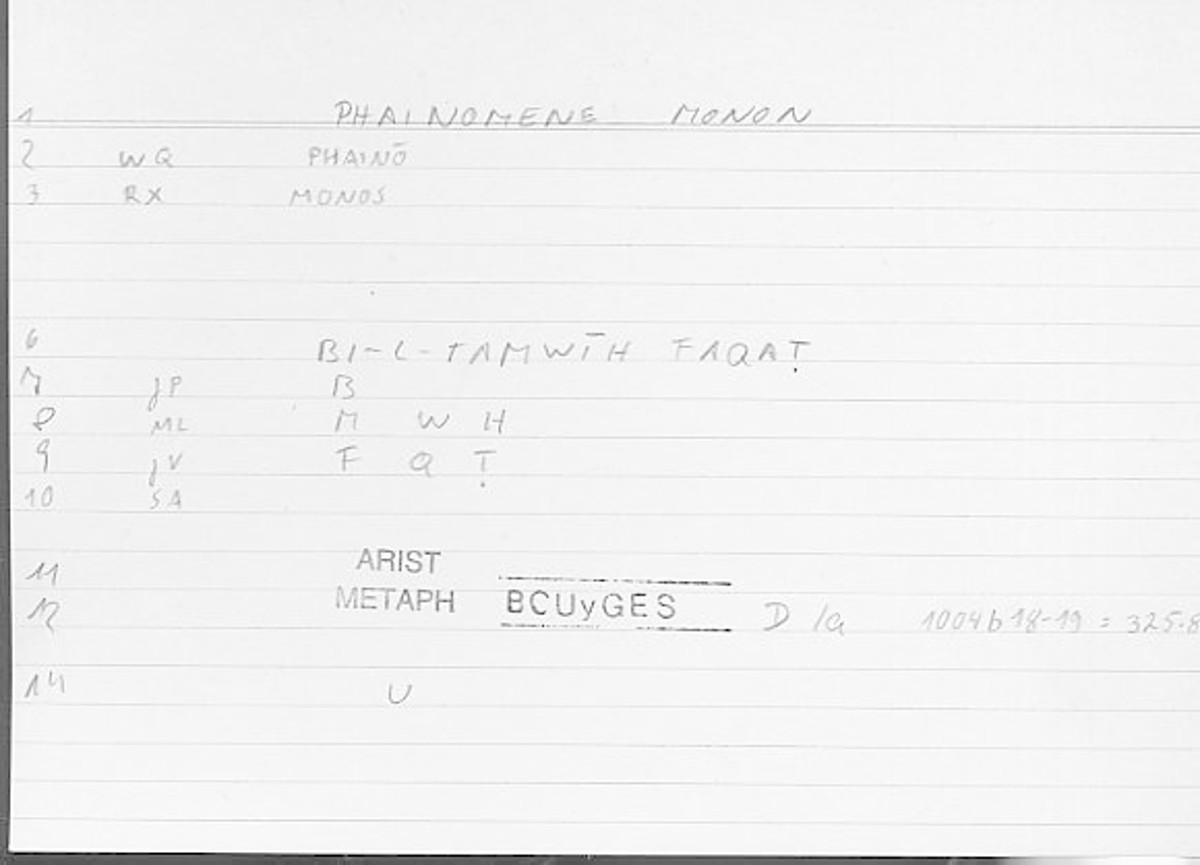 1 PHAINOMENE MONON
2 WQ PHAINŌ
3 RX MONOS
6 BI-L-TAMWĪH FAQAṬ
7 JP B
8 ML M W H
9 JV F Q Ṭ
10 SA
11 ARIST
12 METAPH BCUyGES D 1a 1004b18-19 = 325.8
14 U